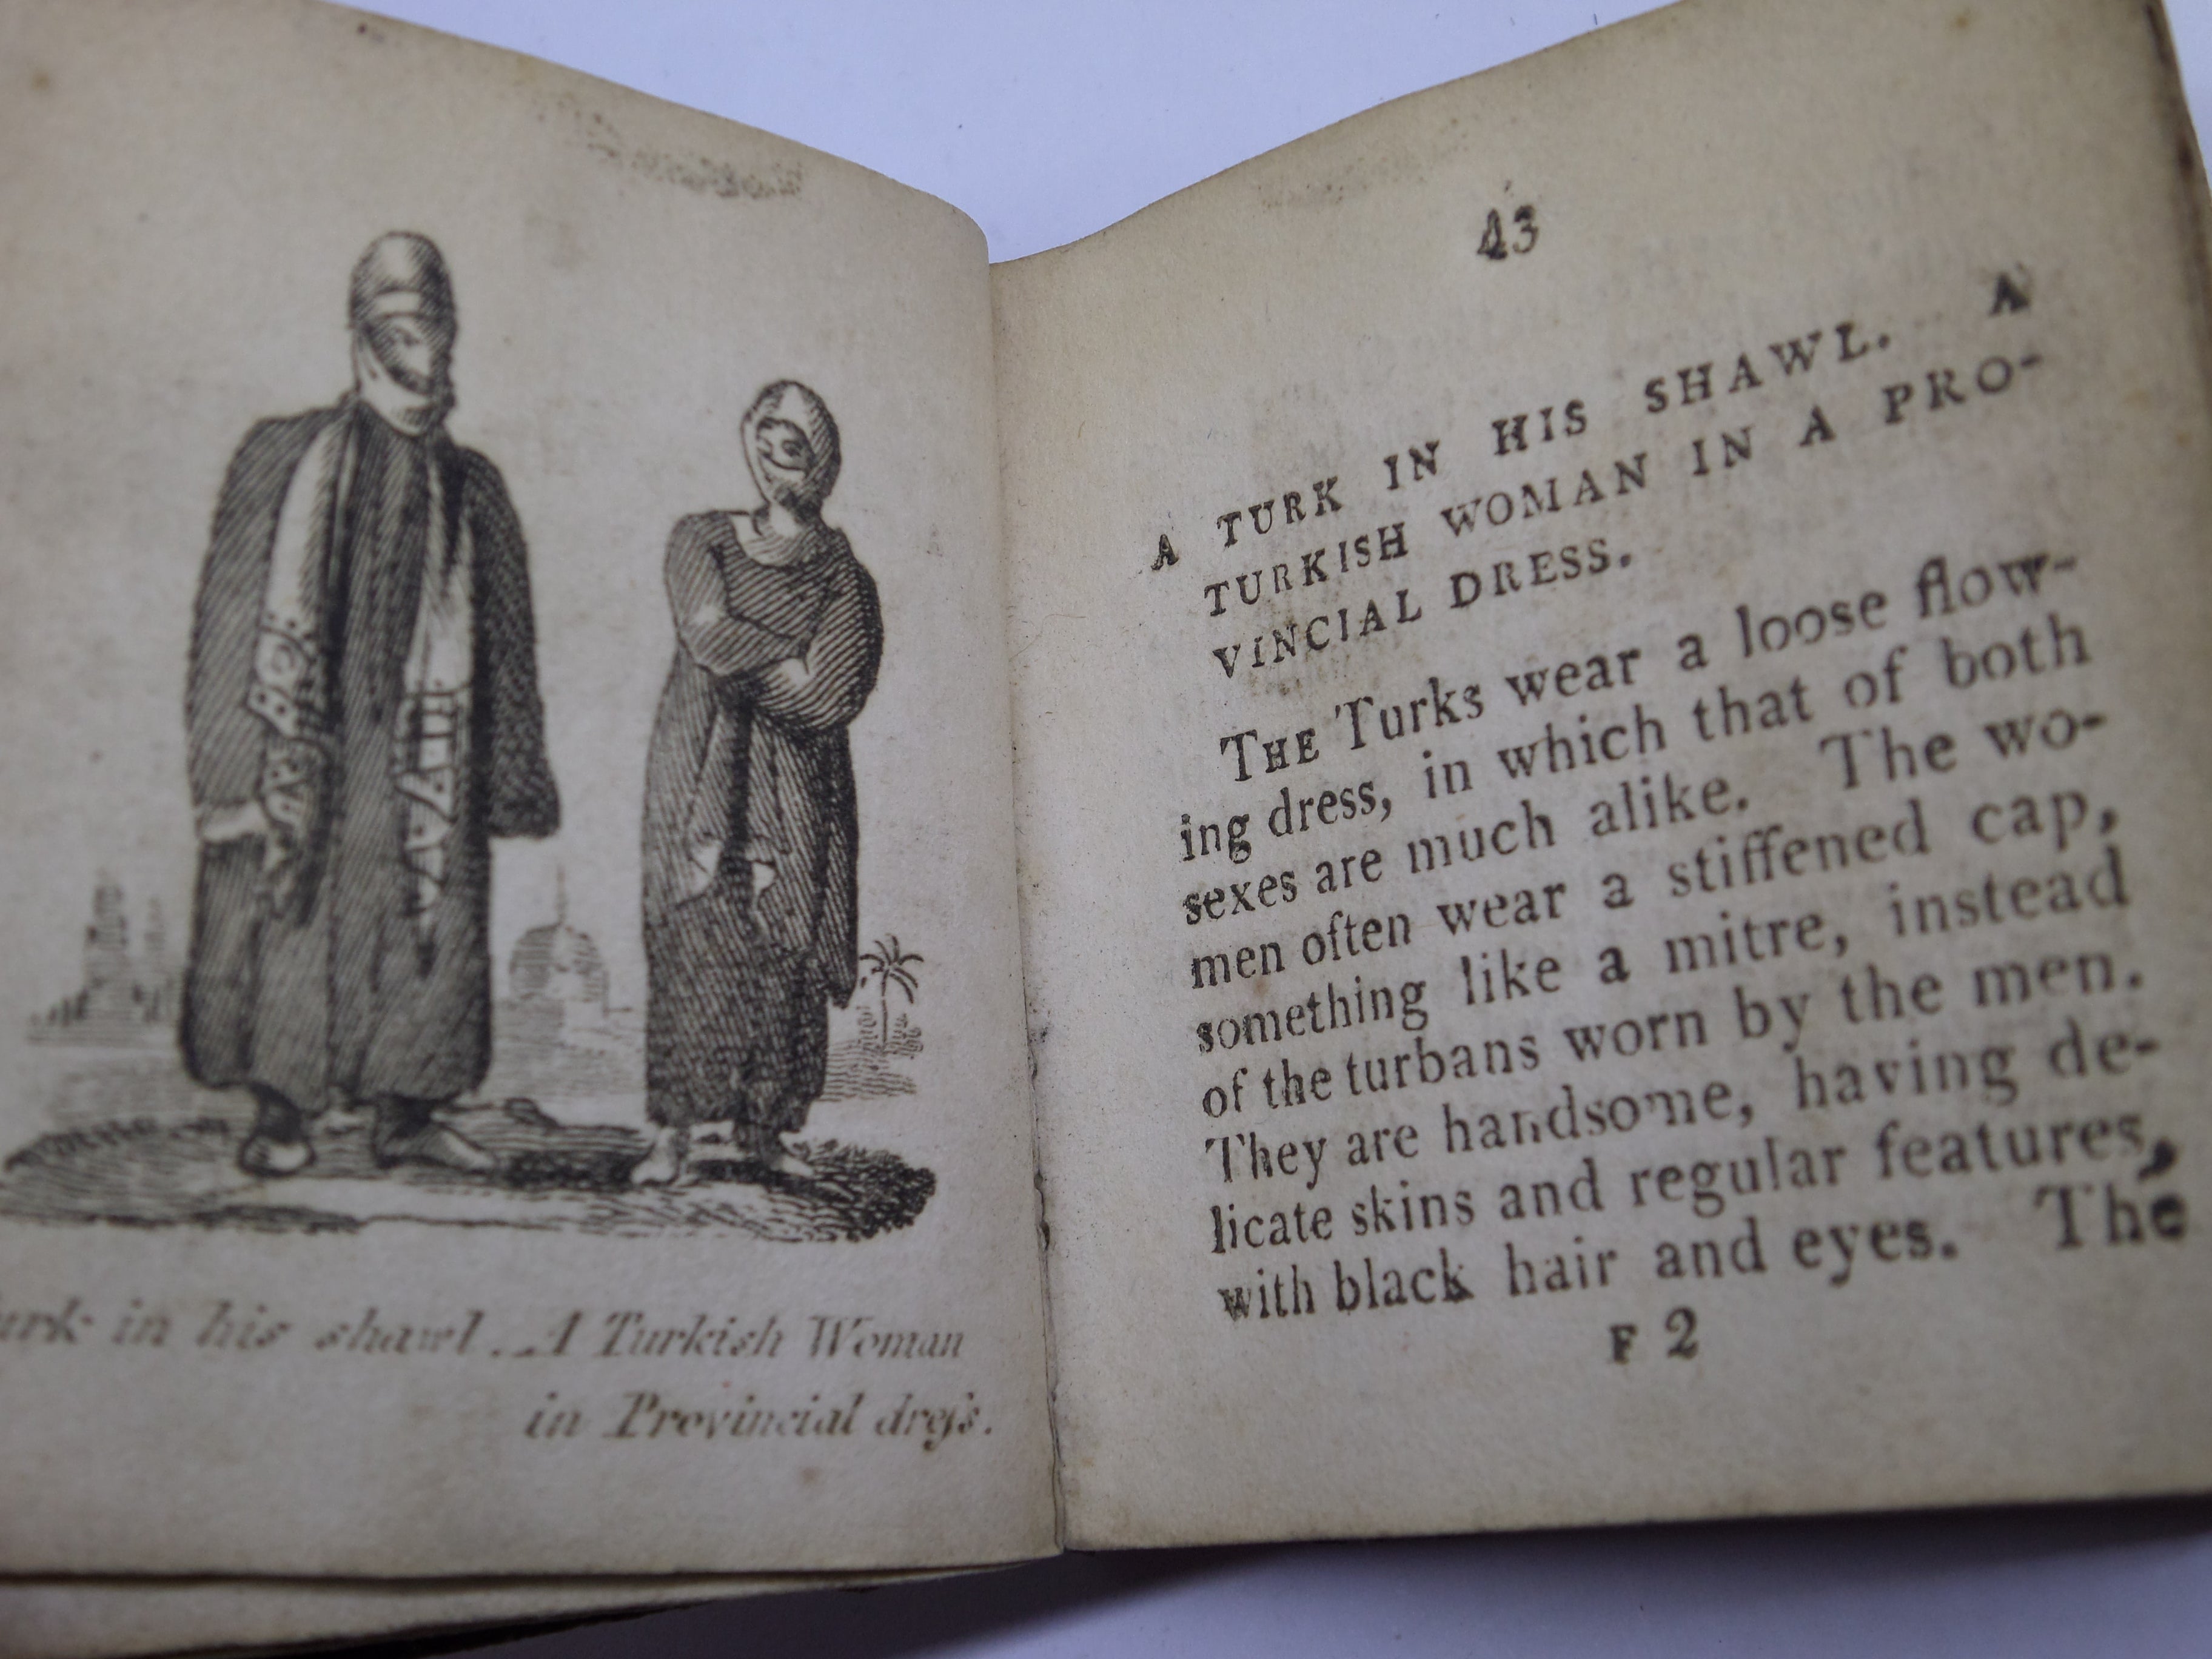 urk in his shawl. A Turkish Woman
in Provincial dreſs.
43
A TURK IN HIS SHAWL. A
TURKISH WOMAN IN A PRO-
VINCIAL DRESS.
THE Turks wear a loose flow-
ing dress, in which that of both
sexes are much alike. The wo-
men often wear a stiffened cap,
something like a mitre, instead
of the turbans worn by the men.
They are handsome, having de-
licate skins and regular features,
with black hair and eyes. The
F 2